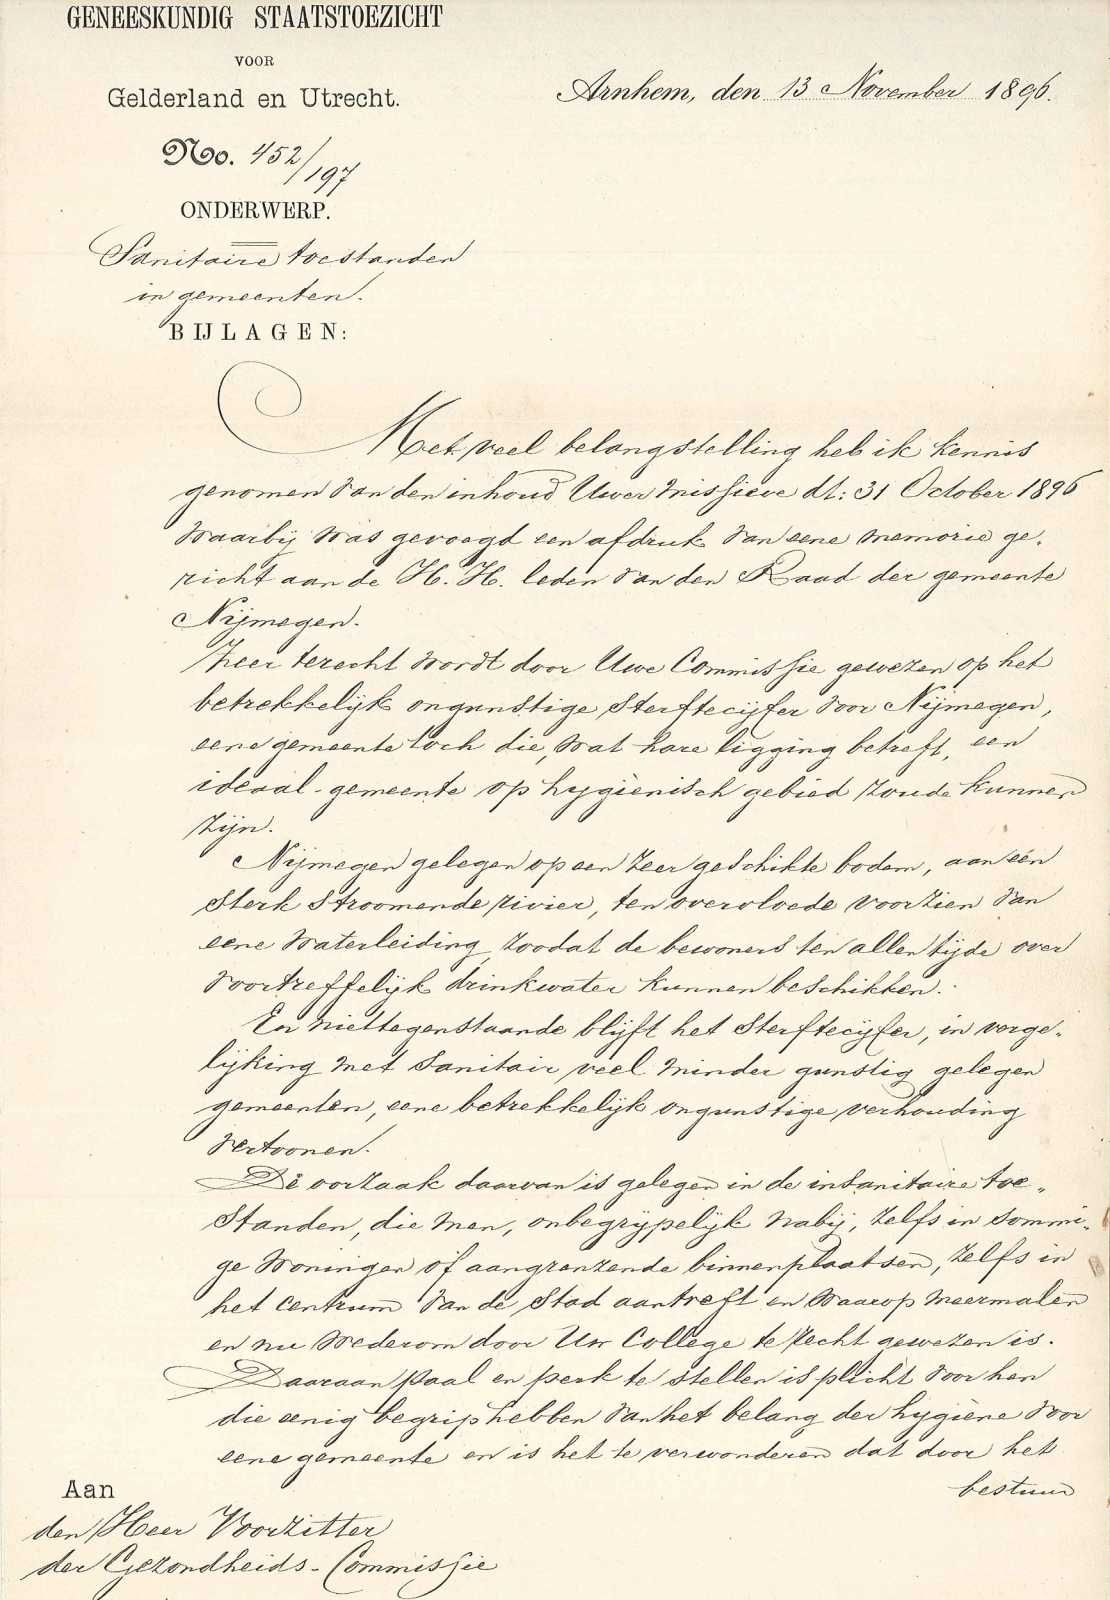 GENEESKUNDIG STAATSTOEZICHT
VOOR
Gelderland en Utrecht.
Arnhem, den 13 November 1896.
No. 452/197
ONDERWERP.
Sanitaire toestanden
in gemeenten.
BIJLAGEN:
Met veel belangstelling heb ik kennis
genomen van den inhoud Uwer missieve dt: 31 October 1896
waarbij was gevoegd een afdruk van eene memorie ge-
richt aan de H.H. leden van den Raad der gemeente
Nijmegen.
Zeer terecht wordt door Uwe Commissie gewezen op het
betrekkelijk ongunstige sterftecijfer voor Nijmegen,
eene gemeente toch die, wat hare ligging betreft, een
ideaal-gemeente op hygiënisch gebied zoude kunnen
zijn.
Nijmegen gelegen op een zeer geschikte bodem, aan eén
sterk stroomende rivier, ten overvloede voorzien van
eene waterleiding, zoodat de bewoners ten allen tijde over
voortreffelijk drinkwater kunnen beschikken.
En niettegenstaande blijft het sterftecijfer, in verge-
lijking met sanitair veel minder gunstig gelegen
gemeenten, eene betrekkelijk ongunstige verhouding
vertoonen.
De oorzaak daarvan is gelegen in de insanitaire toe-
standen, die men, onbegrijpelijk nabij, zelfs in sommi-
ge woningen of aangranzende binnenplaatsen, zelfs in
het centrum van de stad aantreft en waarop meermalen
en nu wederom door Uw College te recht gewezen is.
Daaraan paal en perk te stellen is plicht voor hen
die eenig begrip hebben van het belang der hygiène voor
eene gemeente en is het te verwonderen dat door het
bestuur
Aan
den Heer Voorzitter
der Gezondheids-Commissie